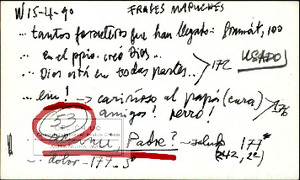 W 15-4-90 FRASES MAPUCHES
... tantos forasteros que han llegado: Bromát, 100
... en el ppio. creó Dios.. USADO
... Dios está en todas partes.. 172
... em! → cariñoso al papá (cura) 176
53 amigo! perro!
Padre? ~ saludo 171*
~. dolor - 177.5* (242, 22)